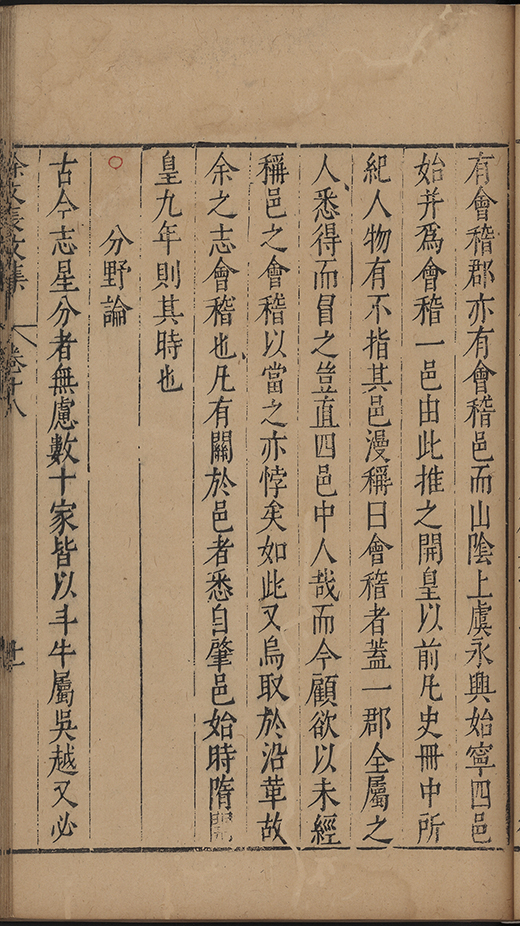 有會稽郡亦有會稽邑而山陰上虞永興始寧四邑
始并爲會稽一邑由此推之開皇以前凡史冊中所
紀人物有不指其邑漫稱曰會稽者蓋一郡全屬之
人悉得而冒之豈直四邑中人哉而今顧欲以未經
稱邑之會稽以當之亦悖矣如此又烏取於沿革故
余之志會稽也凡有關於邑者悉自肇邑始時隋開
皇九年則其時也
分野論
古今志星分者無慮數十家皆以斗牛屬吳越又必
徐文長文集 卷十八